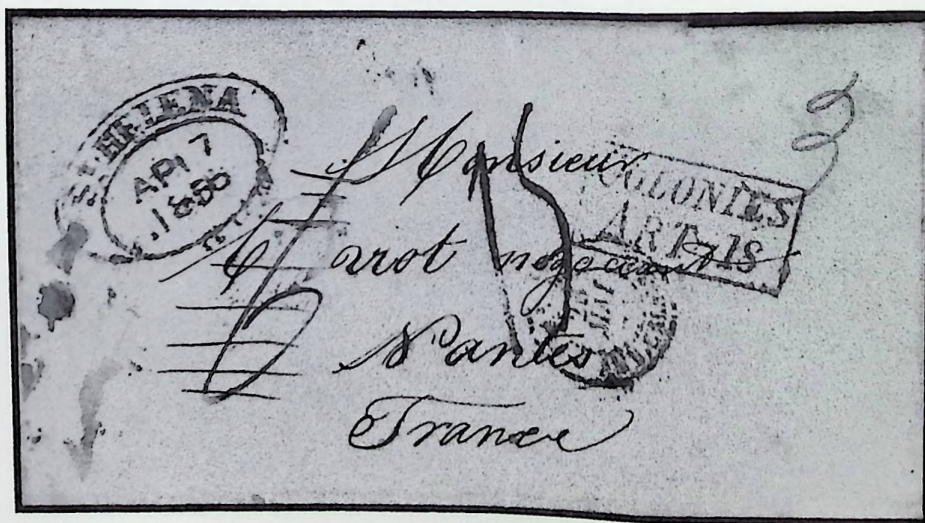 ST HELENA
AP 7
1856
Monsieur
négociant
Nantes
France
COLONIES
ART. 18